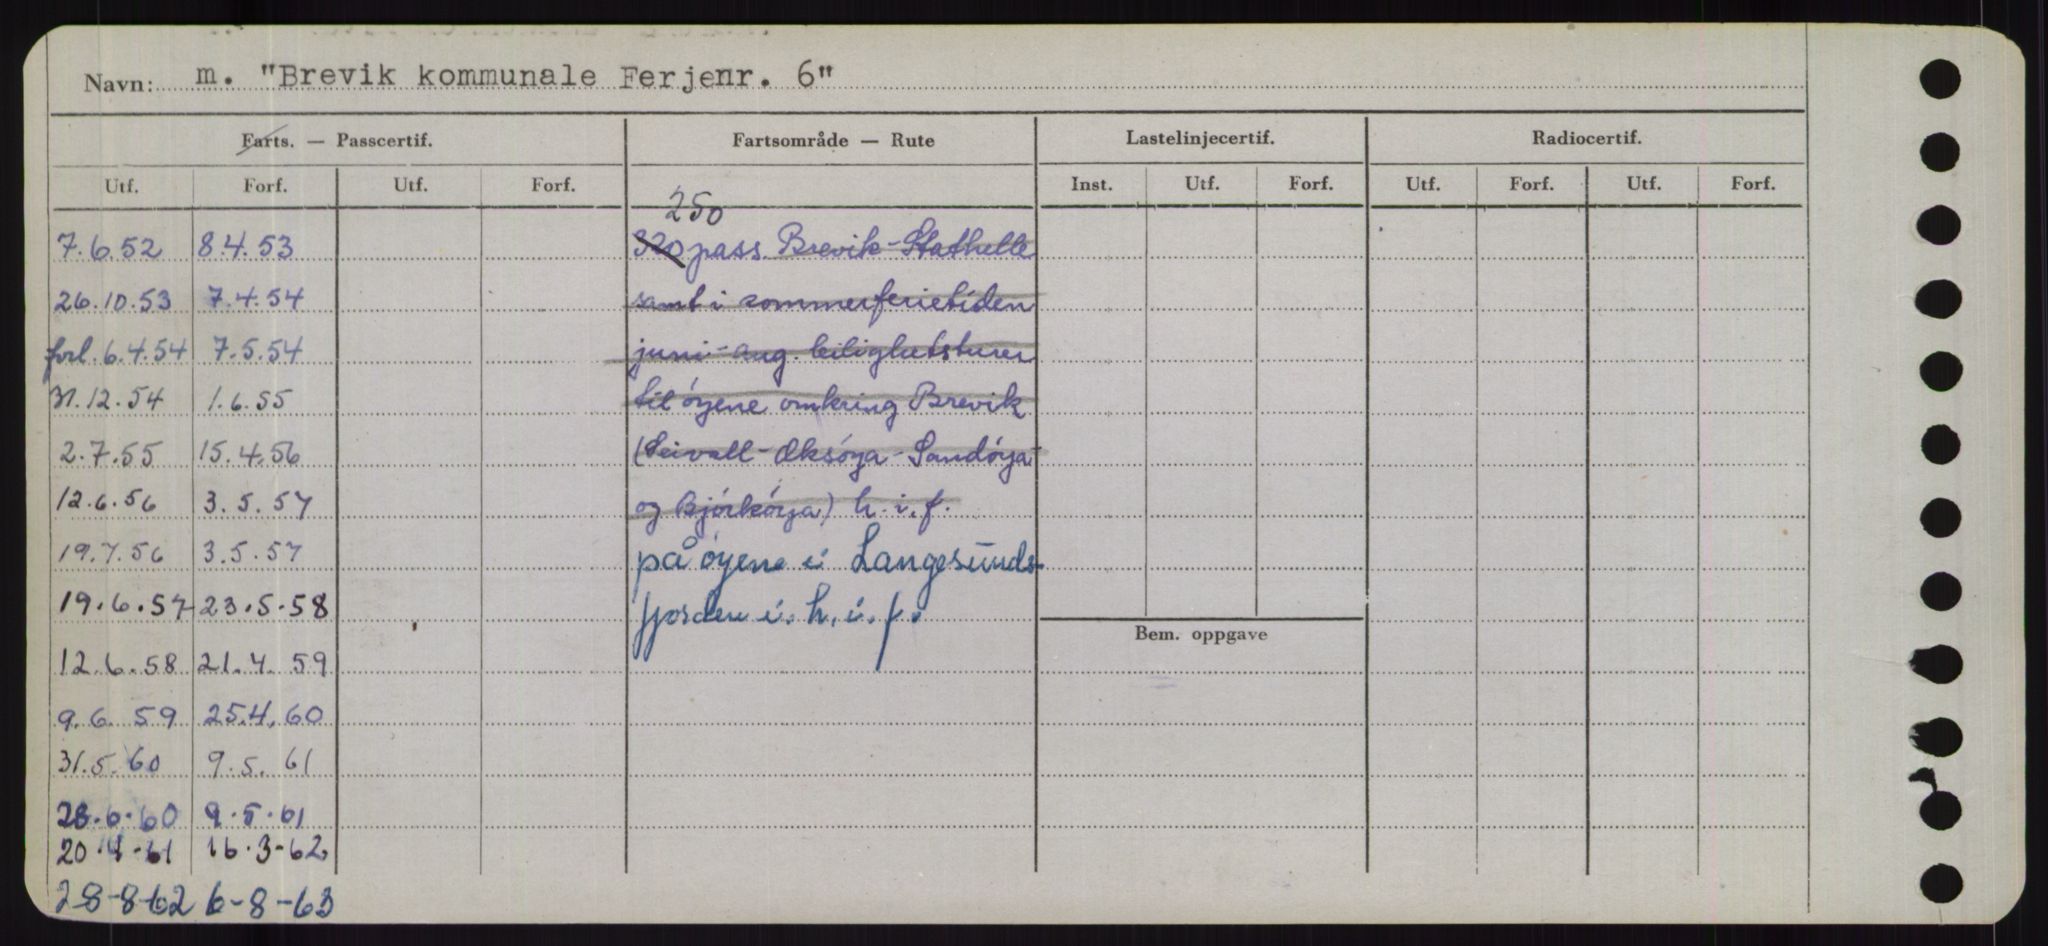 Navn: m. "Brevik kommunale Ferjenr. 6"
Farts. — Passcertif. Fartsområde — Rute Lastelinjecertif. Radiocertif.
Utf. Forf. Utf. Forf. Inst. Utf. Forf. Utf. Forf. Utf. Forf.
250
7.6.52 8.4.53 320 pass. Brevik-Stathelle
26.10.53 7.4.54 samt i sommerferietiden
forl. 6.4.54 7.5.54 juni-aug. leilighetsturer
31.12.54 1.6.55 til öyene omkring Brevik
2.7.55 15.4.56 (Sivall-Oksöya-Sandöya
12.6.56 3.5.57 og Björköya) h.i.f.
19.7.56 3.5.57 på öyene i Langesunds-
19.6.57 23.5.58 fjorden i. h. i. f.
Bem. oppgave
12.6.58 21.4.59
9.6.59 25.4.60
31.5.60 9.5.61
28.6.60 9.5.61
20.4-61 16.3-62
28-8-62 6-8-63